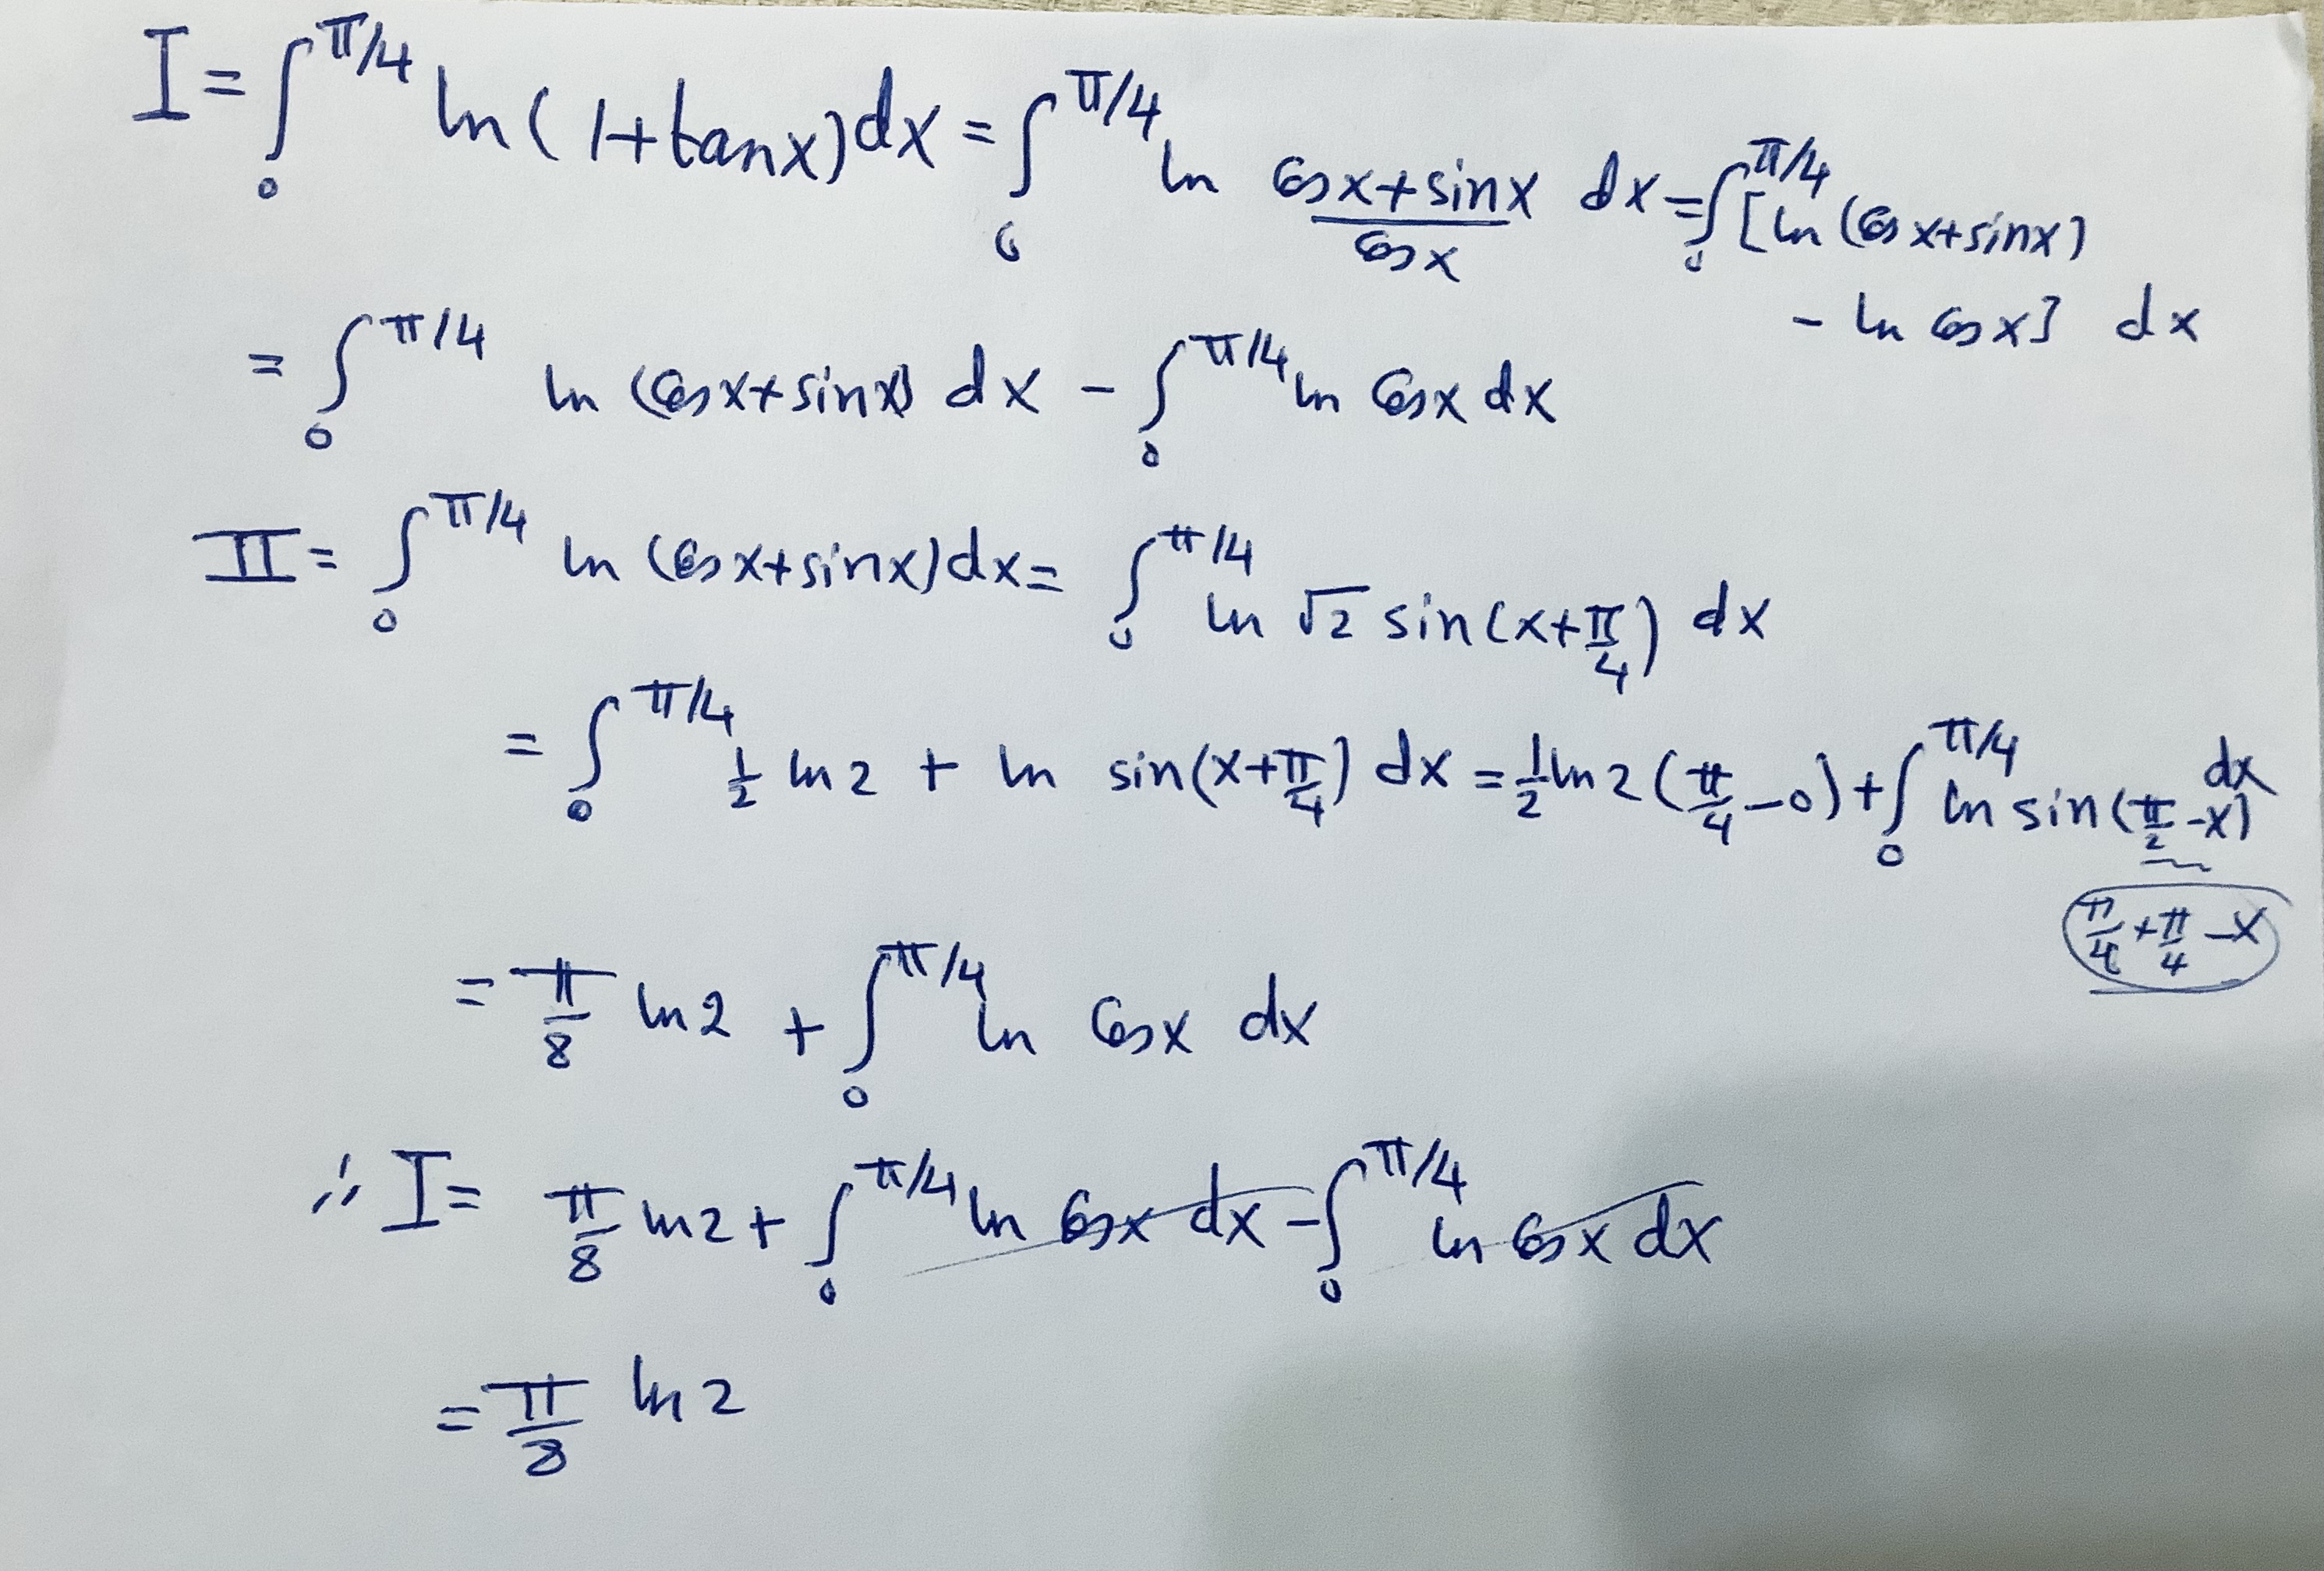 I = ∫₀^{π/4} ln(1+tanx)dx = ∫₀^{π/4} ln (cosx+sinx)/cosx dx = ∫₀^{π/4} [ln(cosx+sinx)
- ln cosx] dx
= ∫₀^{π/4} ln(cosx+sinx) dx - ∫₀^{π/4} ln cosx dx
II = ∫₀^{π/4} ln(cosx+sinx)dx = ∫₀^{π/4} ln √2 sin(x+π/4) dx
= ∫₀^{π/4} 1/2 ln2 + ln sin(x+π/4) dx = 1/2 ln2 (π/4 - 0) + ∫₀^{π/4} ln sin(π/2 - x) dx
π/4 + π/4 - x
= π/8 ln2 + ∫₀^{π/4} ln cosx dx
∴ I = π/8 ln2 + ∫₀^{π/4} ln cosx dx - ∫₀^{π/4} ln cosx dx
= π/8 ln2